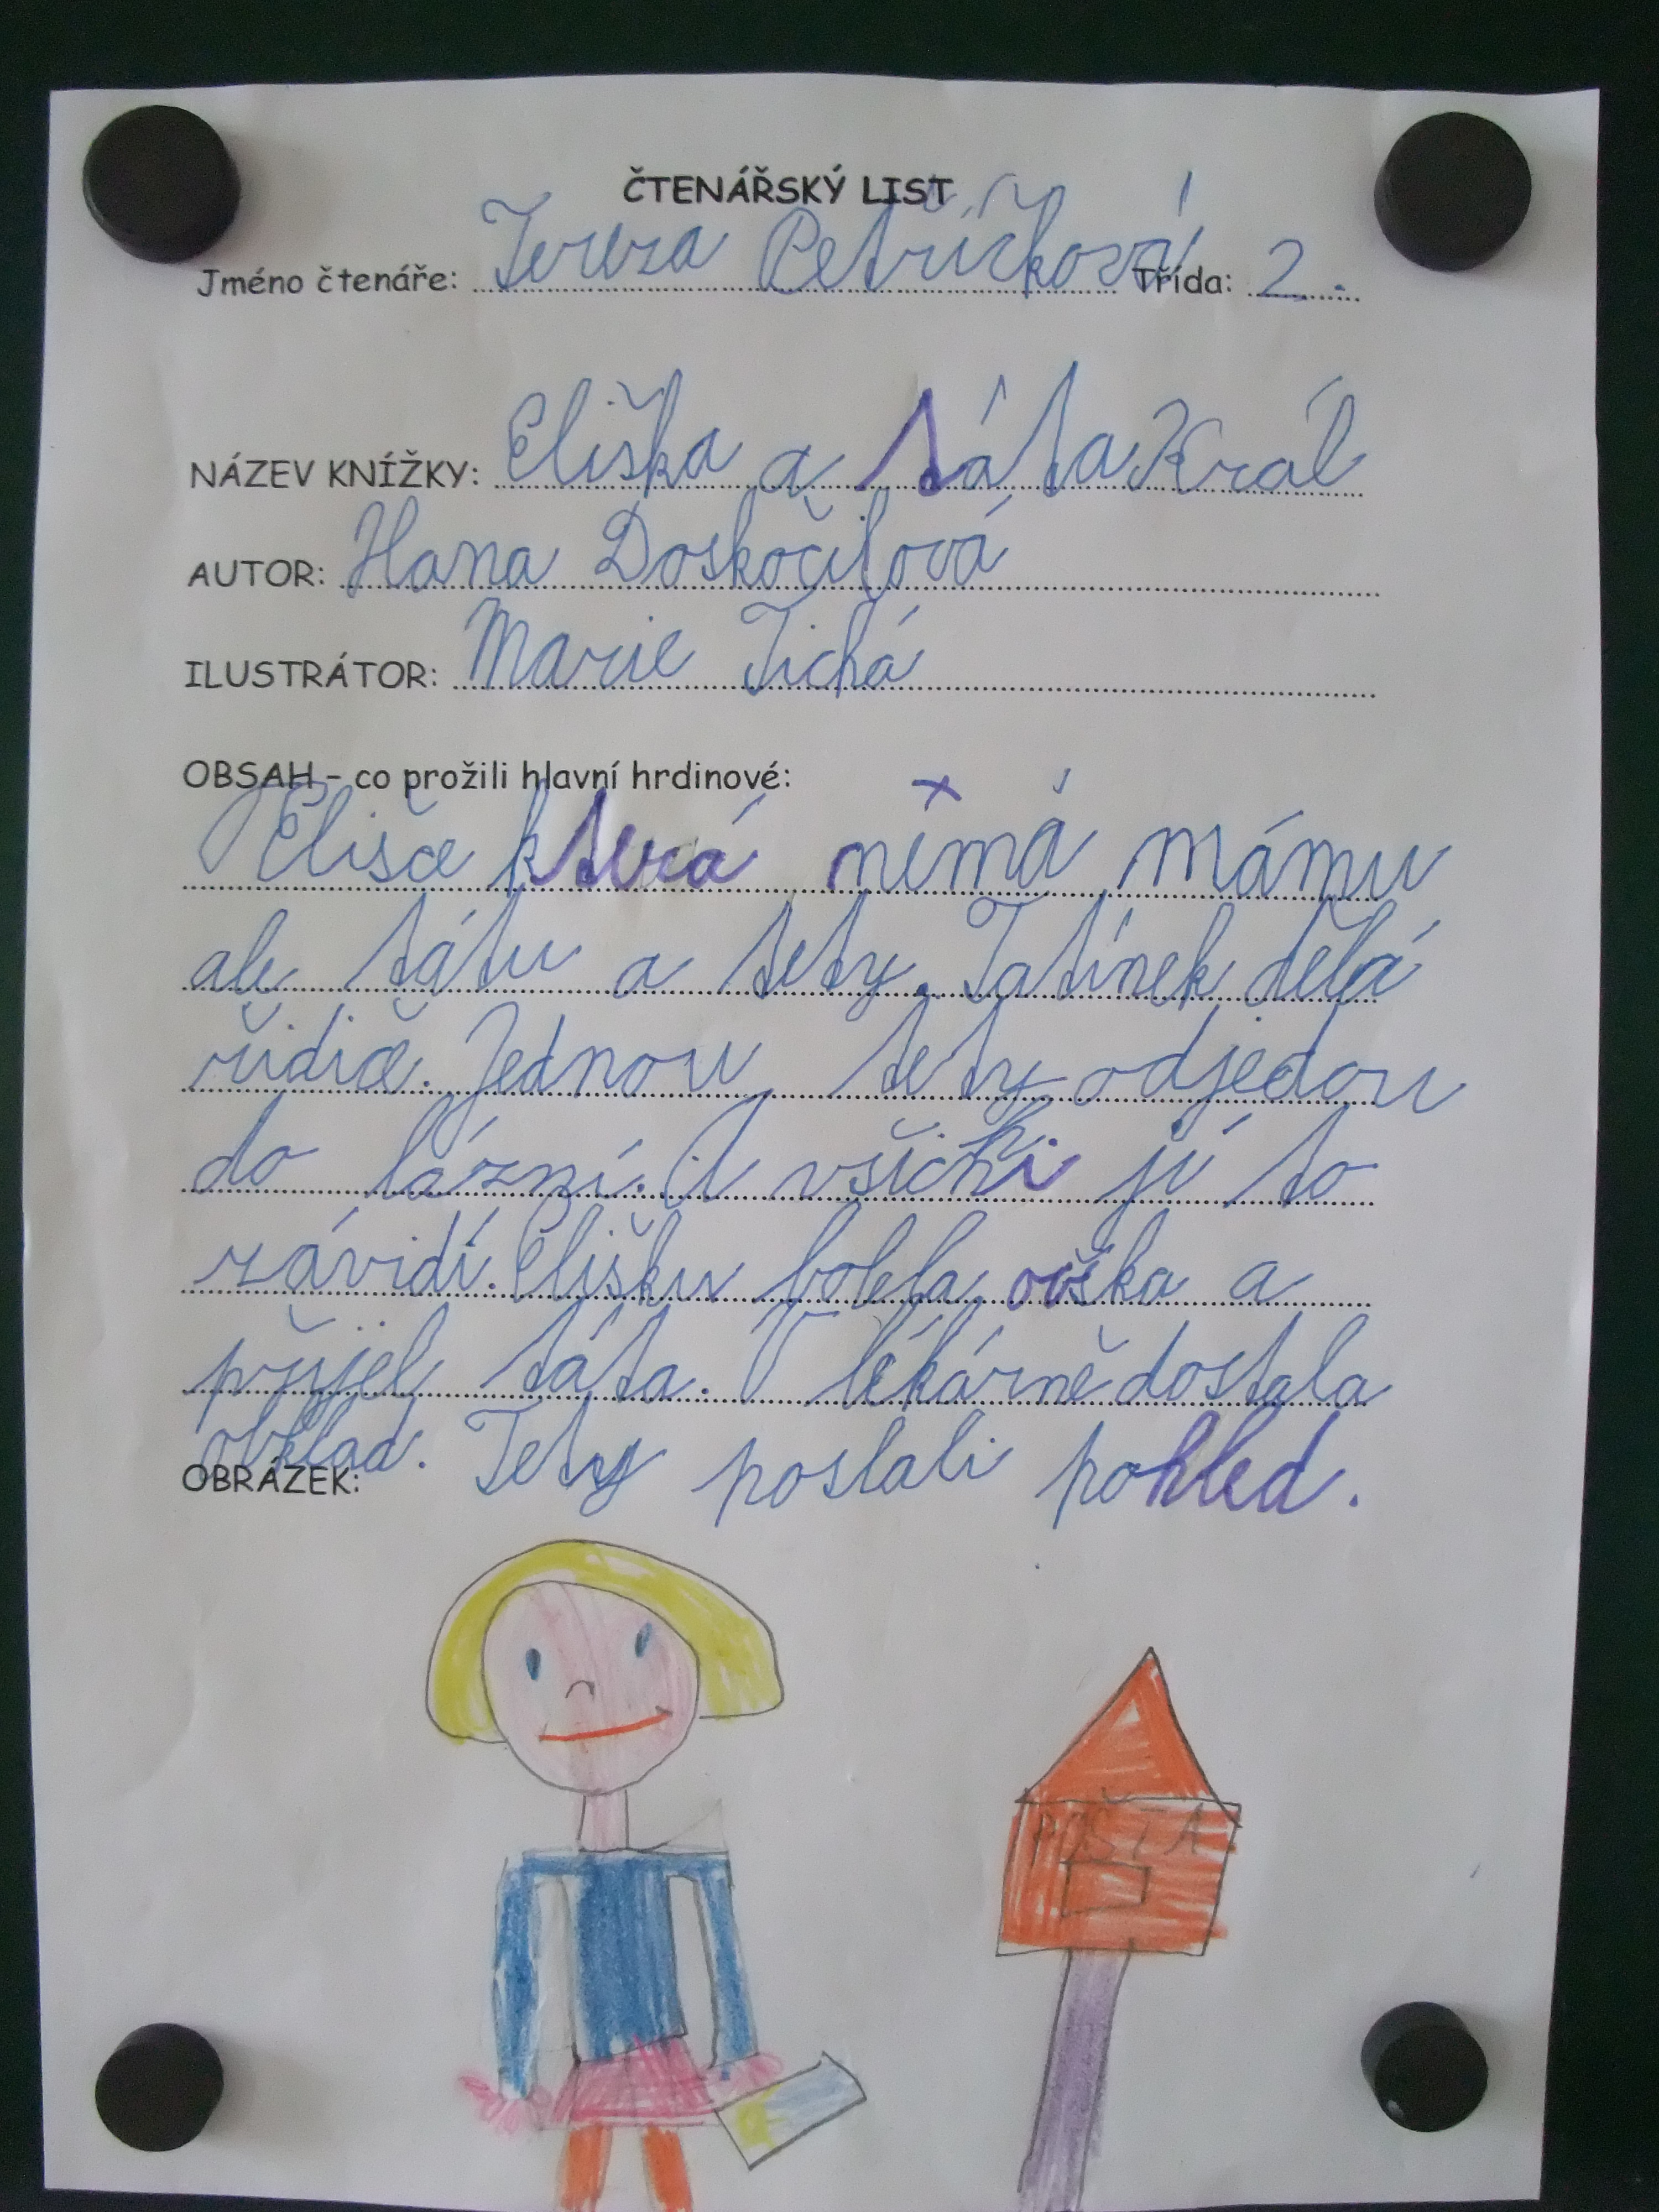 ČTENÁŘSKÝ LIST
Jméno čtenáře: Tereza Petříčková Třída: 2.
NÁZEV KNÍŽKY: Eliška a táta Král
AUTOR: Hana Doskočilová
ILUSTRÁTOR: Marie Tichá
OBSAH - co prožili hlavní hrdinové:
O Elišce která nemá mámu
ale tátu a tety. Tatínek dělá
řidiče. Jednou tety odjedou
do lázní. A všichni jí to
závidí. Elišku bolela ouška a
přijel táta. V lékárně dostala
obklad. Tety poslali pohled.
OBRÁZEK:
POŠTA